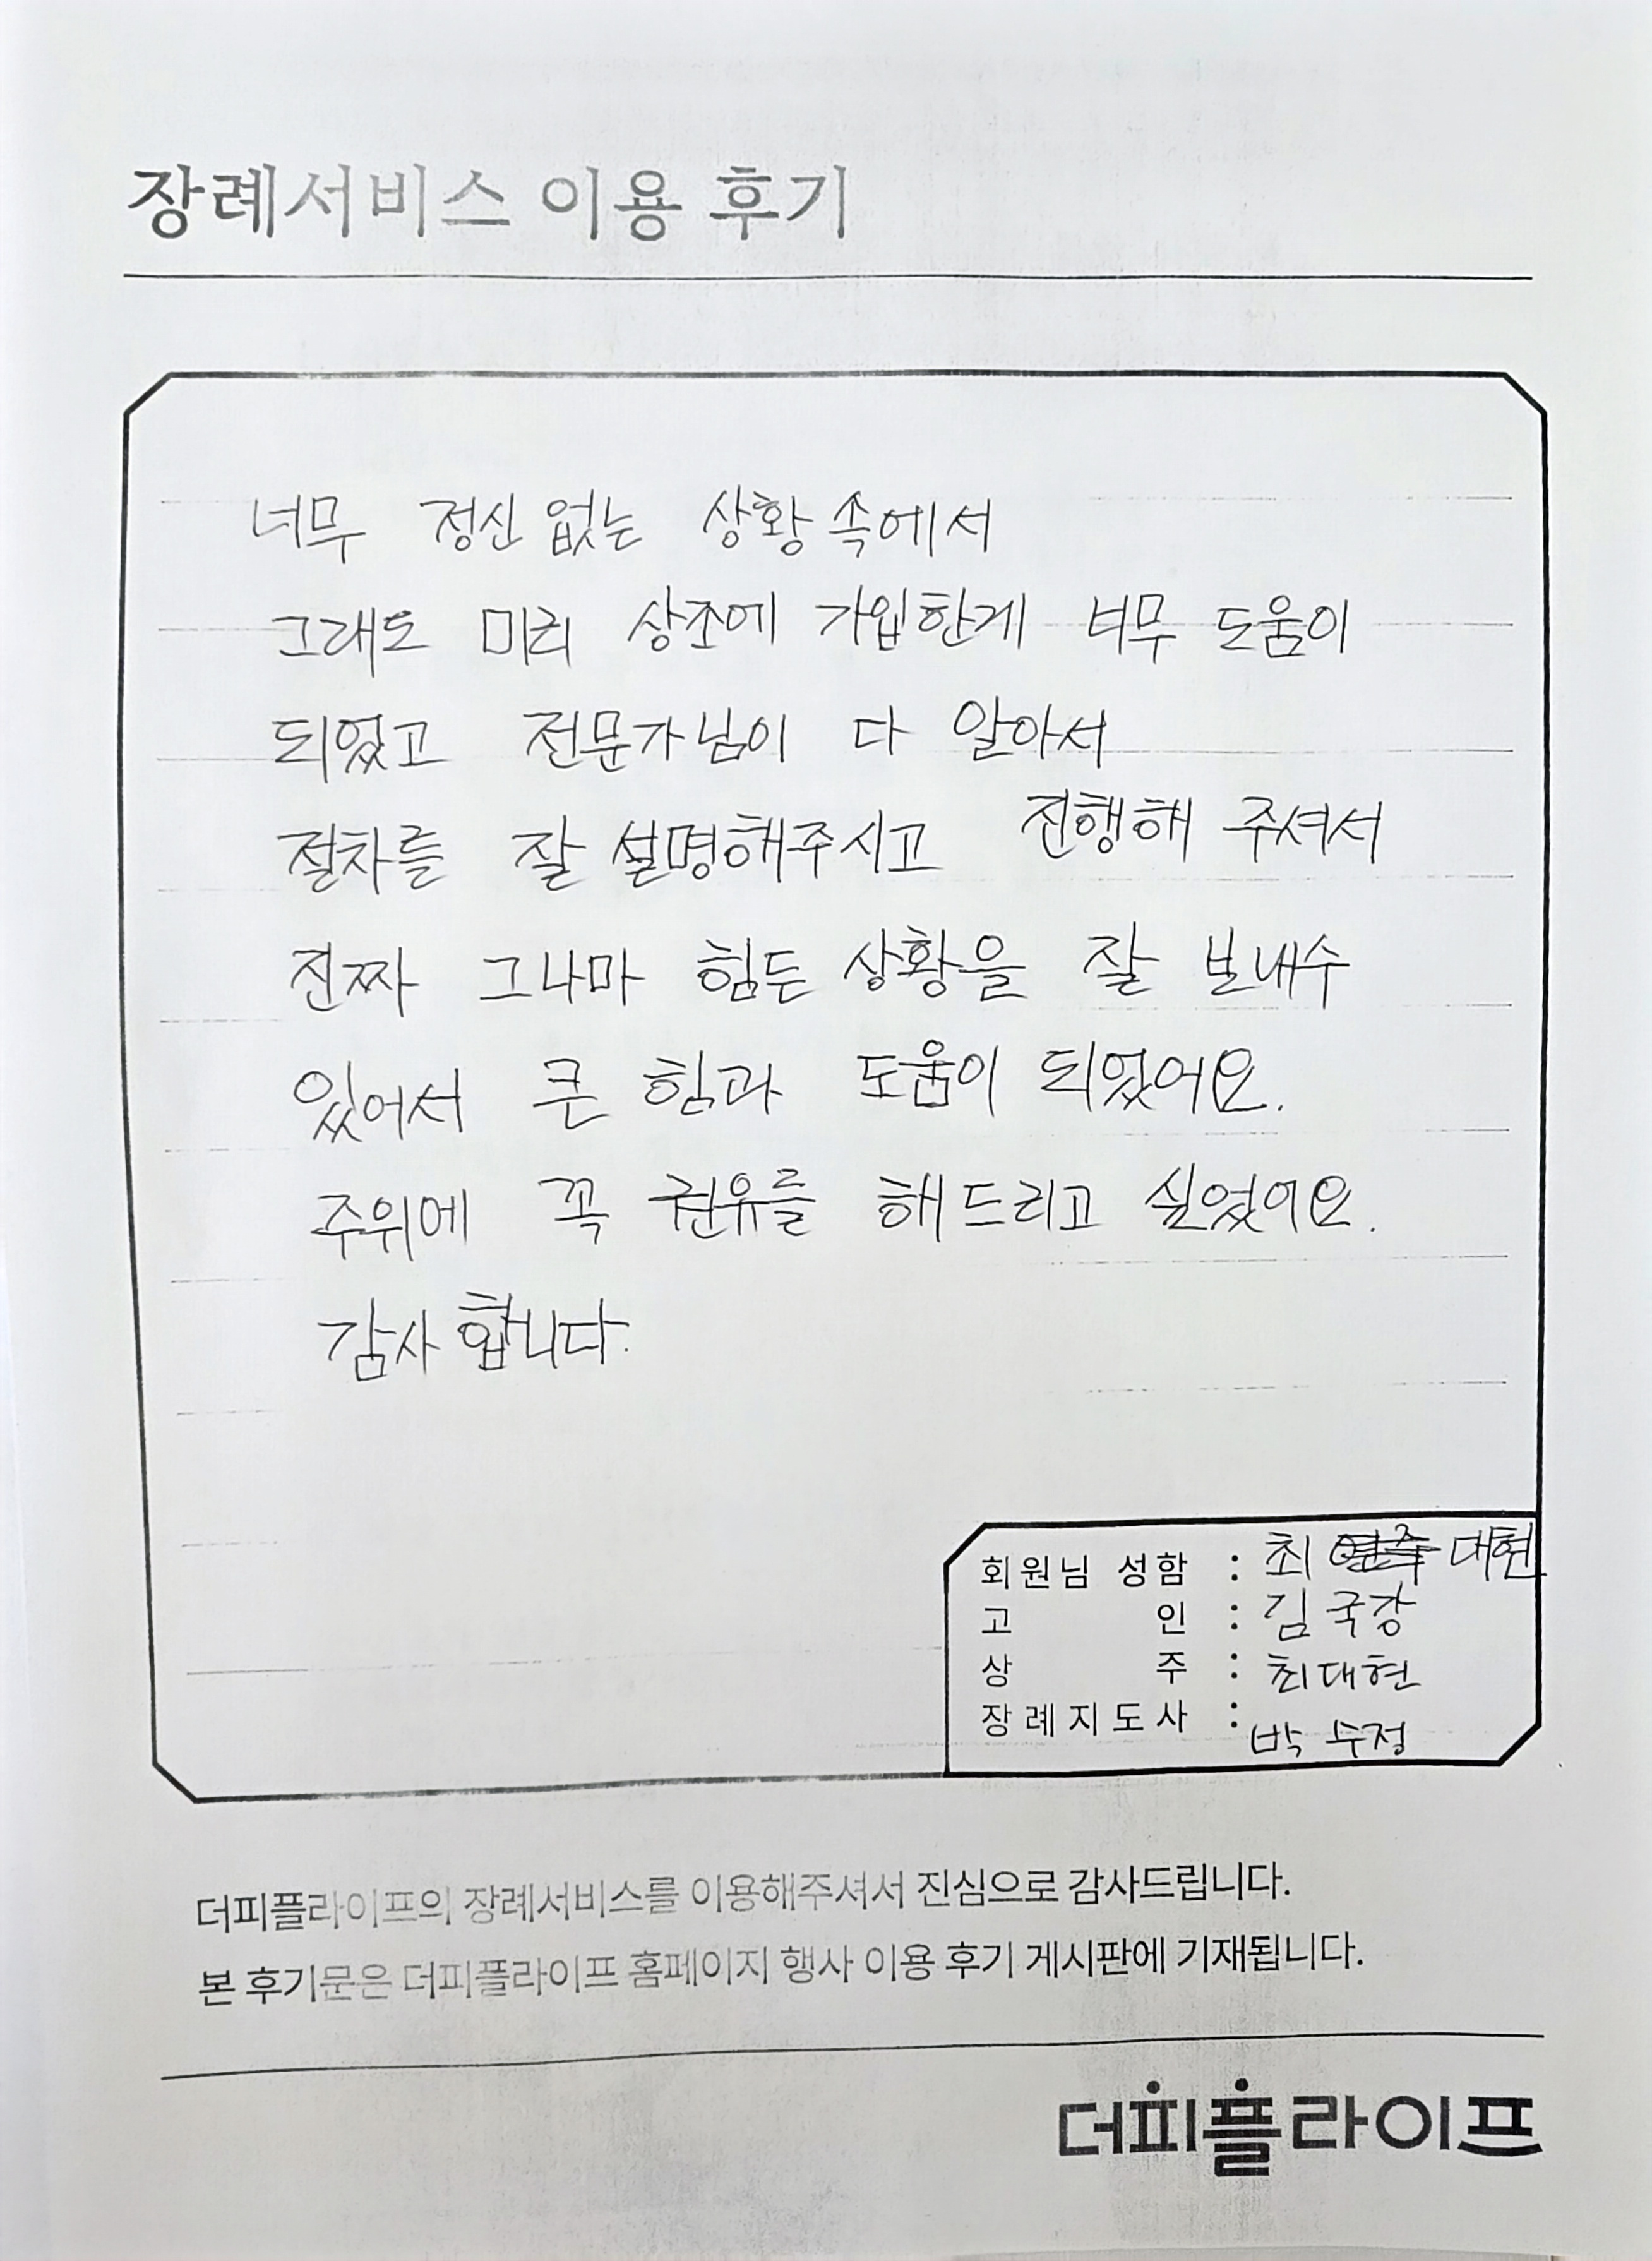 장례서비스 이용 후기
너무 정신없는 상황속에서
그래도 미리 상조에 가입한게 너무 도움이
되었고 전문가님이 다 알아서
절차를 잘 설명해주시고 진행해 주셔서
진짜 그나마 힘든 상황을 잘 보내수
있어서 큰 힘과 도움이 되었어요.
주위에 꼭 권유를 해드리고 싶었어요.
감사합니다.
회원님 성함 : 최 대현
고 인 : 김국강
상 주 : 최대현
장례지도사 : 박수정
더피플라이프의 장례서비스를 이용해주셔서 진심으로 감사드립니다.
본 후기문은 더피플라이프 홈페이지 행사 이용 후기 게시판에 기재됩니다.
더피플라이프